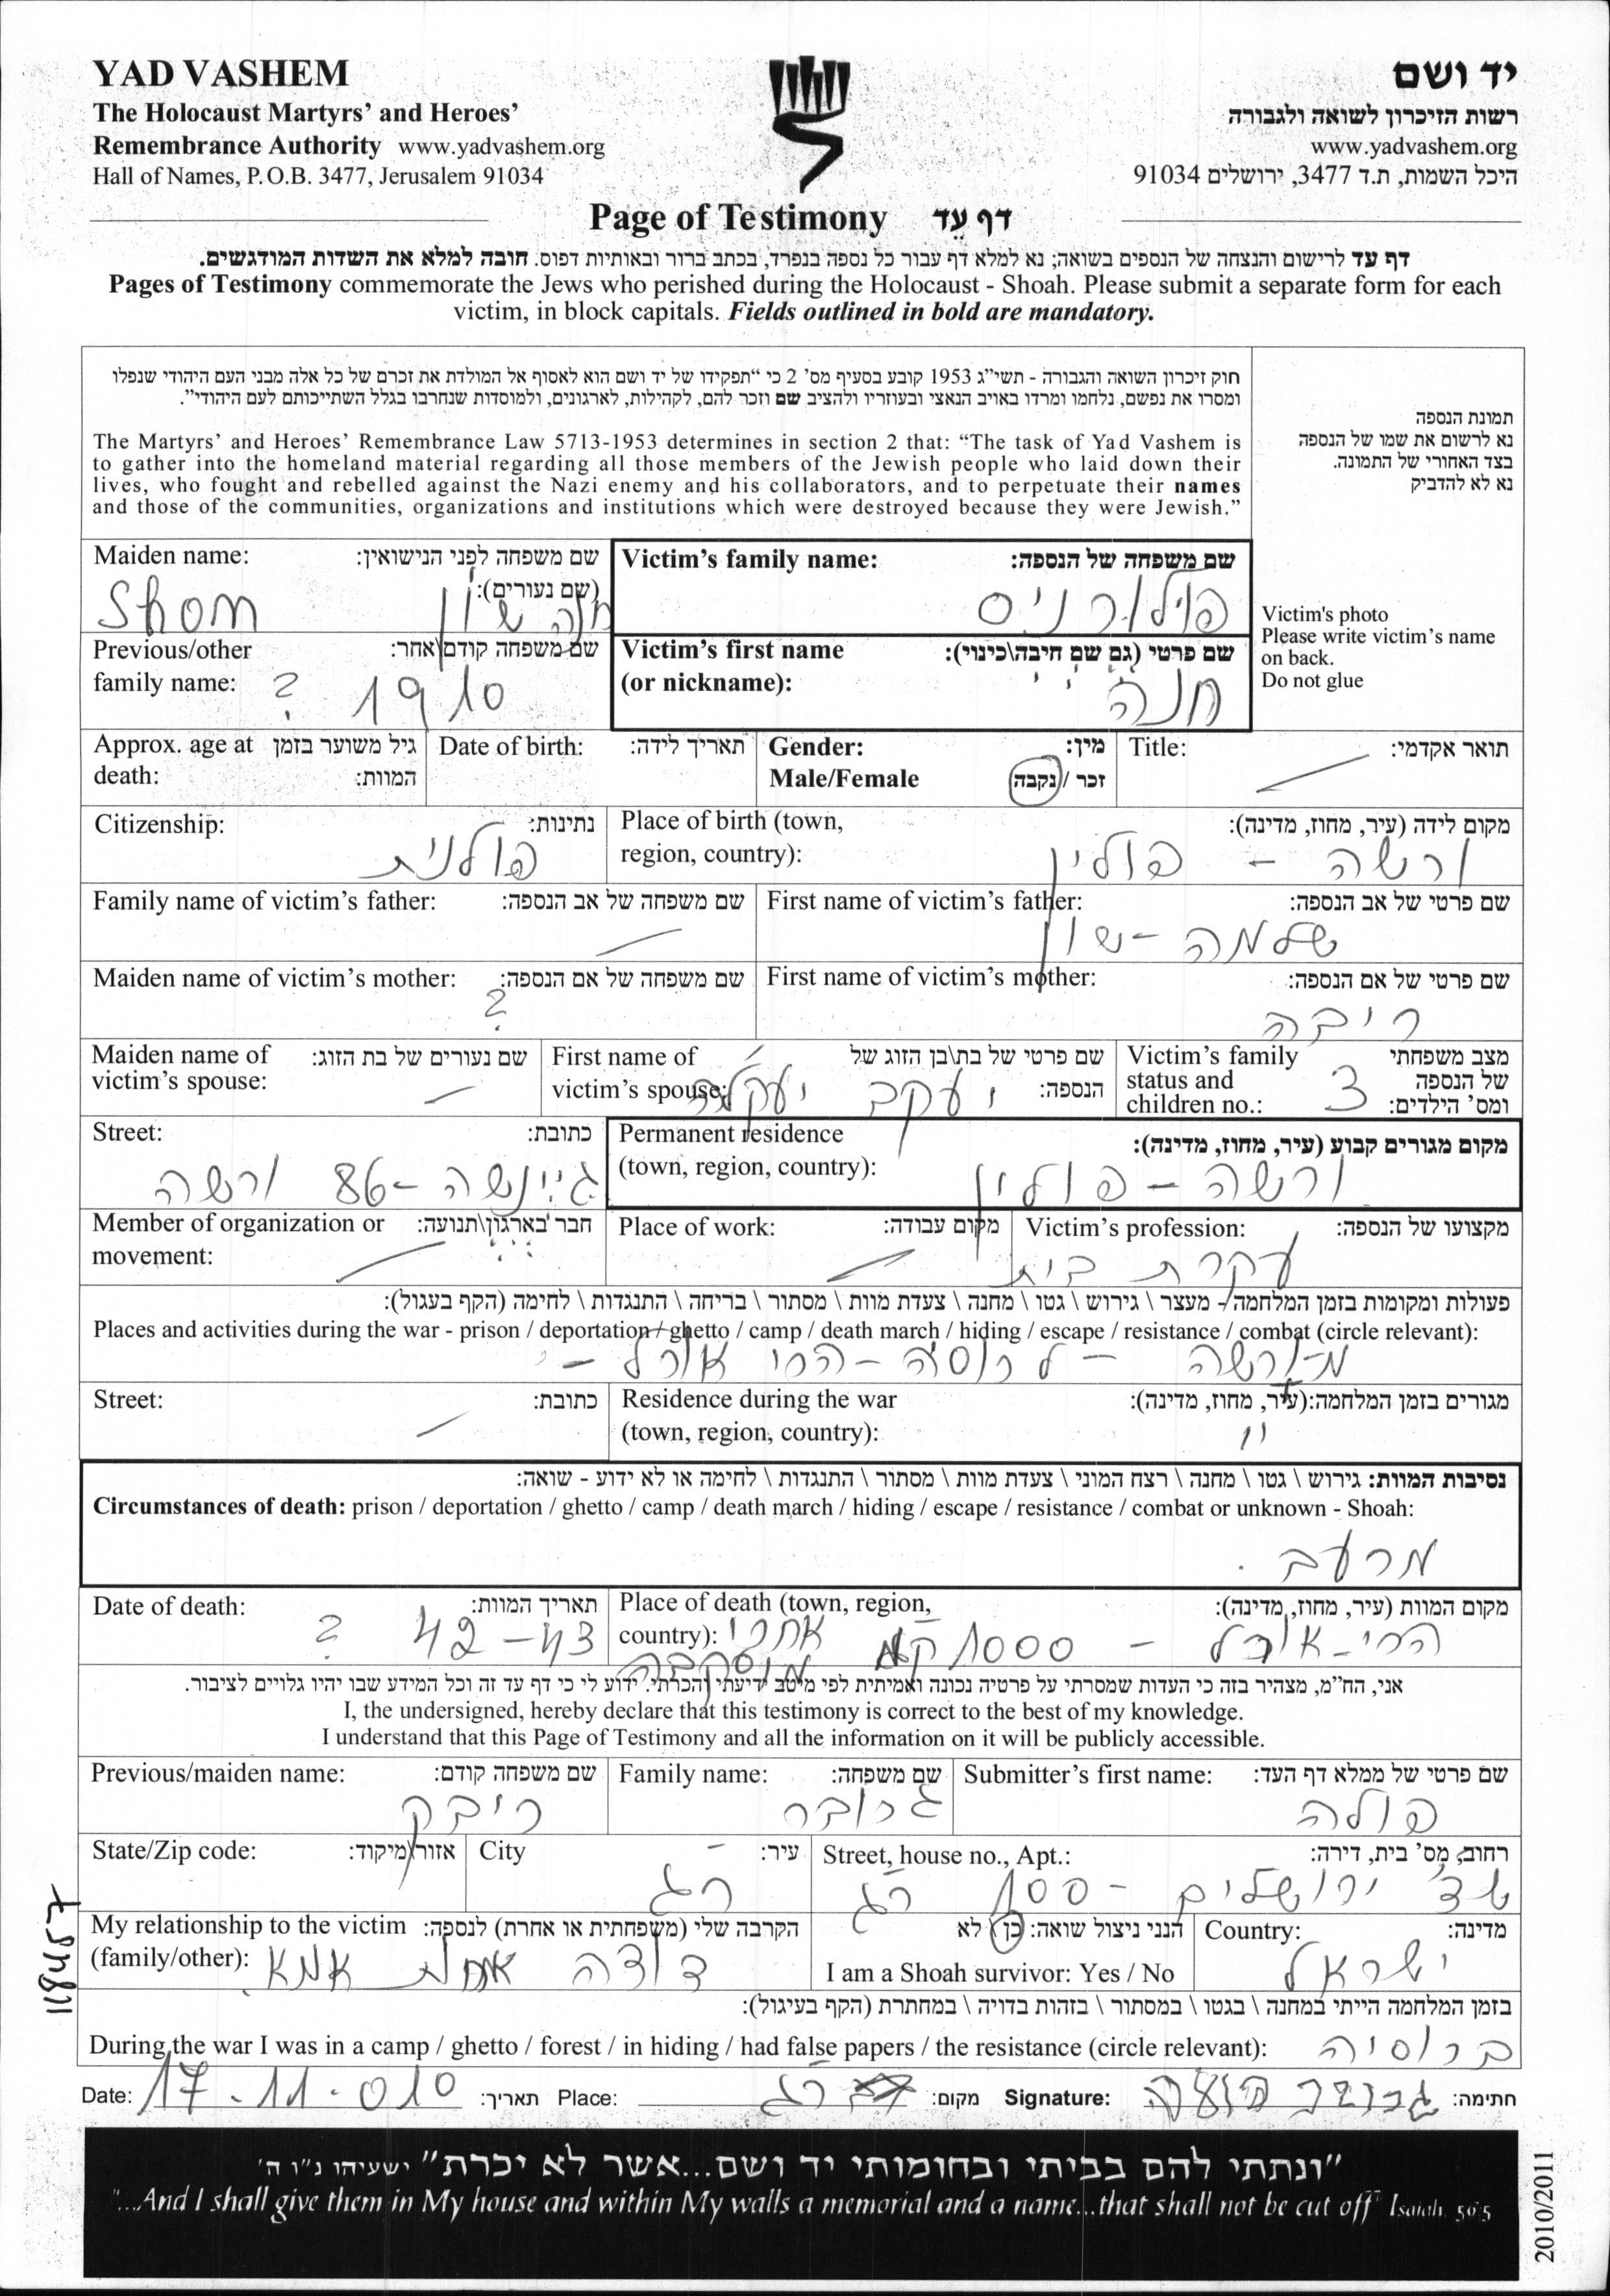 YAD VASHEM
The Holocaust Martyrs' and Heroes'
Remembrance Authority www.yadvashem.org
Hall of Names, P.O.B. 3477, Jerusalem 91034
יד ושם
רשות הזיכרון לשואה ולגבורה
www.yadvashem.org
היכל השמות, ת.ד 3477, ירושלים 91034
Page of Testimony דף עֵד
דף עד לרישום והנצחה של הנספים בשואה; נא למלא דף עבור כל נספה בנפרד, בכתב ברור ובאותיות דפוס. חובה למלא את השדות המודגשים.
Pages of Testimony commemorate the Jews who perished during the Holocaust - Shoah. Please submit a separate form for each
victim, in block capitals. Fields outlined in bold are mandatory.
חוק זיכרון השואה והגבורה - תשי"ג 1953 קובע בסעיף מס' 2 כי "תפקידו של יד ושם הוא לאסוף אל המולדת את זכרם של כל אלה מבני העם היהודי שנפלו
ומסרו את נפשם, נלחמו ומרדו באויב הנאצי ובעוזריו ולהציב שם וזכר להם, לקהילות, לארגונים, ולמוסדות שנחרבו בגלל השתייכותם לעם היהודי".
The Martyrs' and Heroes' Remembrance Law 5713-1953 determines in section 2 that: "The task of Yad Vashem is
to gather into the homeland material regarding all those members of the Jewish people who laid down their
lives, who fought and rebelled against the Nazi enemy and his collaborators, and to perpetuate their names
and those of the communities, organizations and institutions which were destroyed because they were Jewish."
תמונת הנספה
נא לרשום את שמו של הנספה
בצד האחורי של התמונה.
נא לא להדביק
Victim's photo
Please write victim's name
on back.
Do not glue
Victim's family name: שם משפחה של הנספה:
Maiden name: שם משפחה לפני הנישואין:
(שם נעורים):
Shom שון
Victim's first name שם פרטי (גם שם חיבה\כינוי):
(or nickname):
חנה
Previous/other שם משפחה קודם\אחר:
family name: ? 1910
Approx. age at גיל משוער בזמן
death: המוות:
Date of birth: תאריך לידה:
Gender: מין:
Male/Female זכר / נקבה
Title: תואר אקדמי:
Citizenship: נתינות:
פולנית
Place of birth (town, מקום לידה (עיר, מחוז, מדינה):
region, country):
ורשה - פולין
Family name of victim's father: שם משפחה של אב הנספה:
First name of victim's father: שם פרטי של אב הנספה:
שלמה - שון
Maiden name of victim's mother: שם משפחה של אם הנספה:
?
First name of victim's mother: שם פרטי של אם הנספה:
ריבה
Maiden name of שם נעורים של בת הזוג:
victim's spouse:
First name of שם פרטי של בת\בן הזוג של
victim's spouse: הנספה:
יעקב
Victim's family מצב משפחתי
status and של הנספה
children no.: ומס' הילדים:
3
Street: כתובת:
86 ורשה
Permanent residence מקום מגורים קבוע (עיר, מחוז, מדינה):
(town, region, country):
ורשה - פולין
Member of organization or חבר בארגון\תנועה:
movement:
Place of work: מקום עבודה:
Victim's profession: מקצועו של הנספה:
עקרת בית
פעולות ומקומות בזמן המלחמה - מעצר \ גירוש \ גטו \ מחנה \ צעדת מוות \ מסתור \ בריחה \ התנגדות \ לחימה (הקף בעגול):
Places and activities during the war - prison / deportation / ghetto / camp / death march / hiding / escape / resistance / combat (circle relevant):
מ-ורשה - לרוסיה - הרי אורל -
Street: כתובת:
Residence during the war מגורים בזמן המלחמה:(עיר, מחוז, מדינה):
(town, region, country):
"
נסיבות המוות: גירוש \ גטו \ מחנה \ רצח המוני \ צעדת מוות \ מסתור \ התנגדות \ לחימה או לא ידוע - שואה:
Circumstances of death: prison / deportation / ghetto / camp / death march / hiding / escape / resistance / combat or unknown - Shoah:
מרעב
Date of death: תאריך המוות:
42-43 ?
Place of death (town, region, מקום המוות (עיר, מחוז, מדינה):
country):
הרי-אורל - 1000 קמ אחרי
מוסקבה
אני, הח"מ, מצהיר בזה כי העדות שמסרתי על פרטיה נכונה ואמיתית לפי מיטב ידיעתי והכרתי. ידוע לי כי דף עד זה וכל המידע שבו יהיו גלויים לציבור.
I, the undersigned, hereby declare that this testimony is correct to the best of my knowledge.
I understand that this Page of Testimony and all the information on it will be publicly accessible.
Previous/maiden name: שם משפחה קודם:
ריבק
Family name: שם משפחה:
גרובר
Submitter's first name: שם פרטי של ממלא דף העד:
פולה
State/Zip code: אזור\מיקוד:
City עיר:
רג
Street, house no., Apt.: רחוב, מס' בית, דירה:
שד' ירושלים - 100 רג
My relationship to the victim הקרבה שלי (משפחתית או אחרת) לנספה:
(family/other):
דודה אחות אמא
הנני ניצול שואה: כן \ לא
I am a Shoah survivor: Yes / No
Country: מדינה:
ישראל
בזמן המלחמה הייתי במחנה \ בגטו \ במסתור \ בזהות בדויה \ במחתרת (הקף בעיגול):
During the war I was in a camp / ghetto / forest / in hiding / had false papers / the resistance (circle relevant):
ברוסיה
Date: 17.11.010 תאריך: Place: רג מקום: Signature: גרובר פולה חתימה:
"ונתתי להם בביתי ובחומותי יד ושם...אשר לא יכרת" ישעיהו נ"ו ה'
"...And I shall give them in My house and within My walls a memorial and a name...that shall not be cut off" Isaiah. 56:5
2010/2011